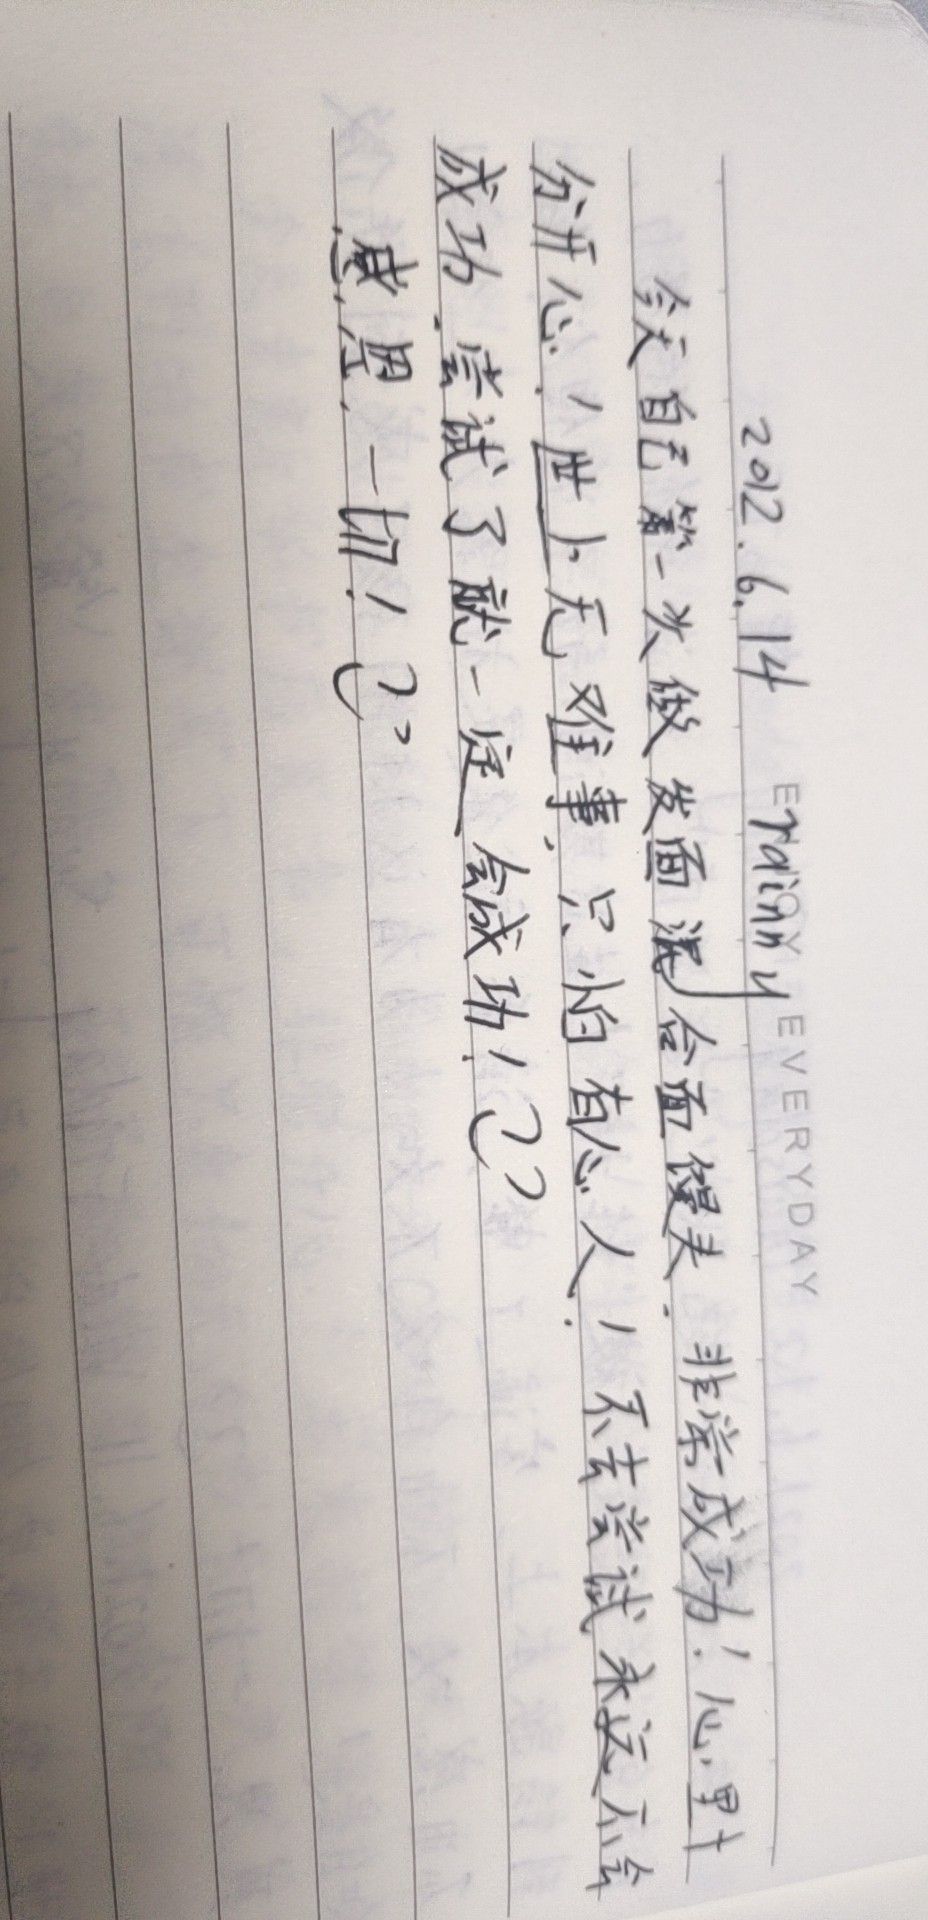 2012.6.14 rainny
ENJOY EVERYDAY
今天自己第一次做发面混合面馒头.非常成功!心里十
分开心.!世上无难事.只怕有心人!不去尝试永远不会
成功.尝试了就一定会成功!
感恩一切!